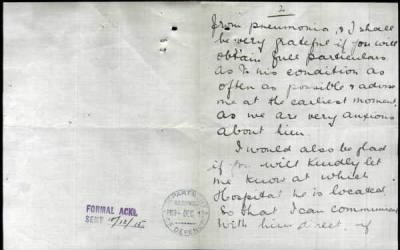 2
from pneumonia, & I shall
be very grateful if you will
obtain full particulars
as to his condition as
often as possible & advise
me at the earliest moment
as we are very anxious
about him.
I would also be glad
if you will kindly let
me know at which
Hospital he is located
so that I can communicate
with him direct. if
FORMAL ACKL
SENT 15/12/15
DEFENCE